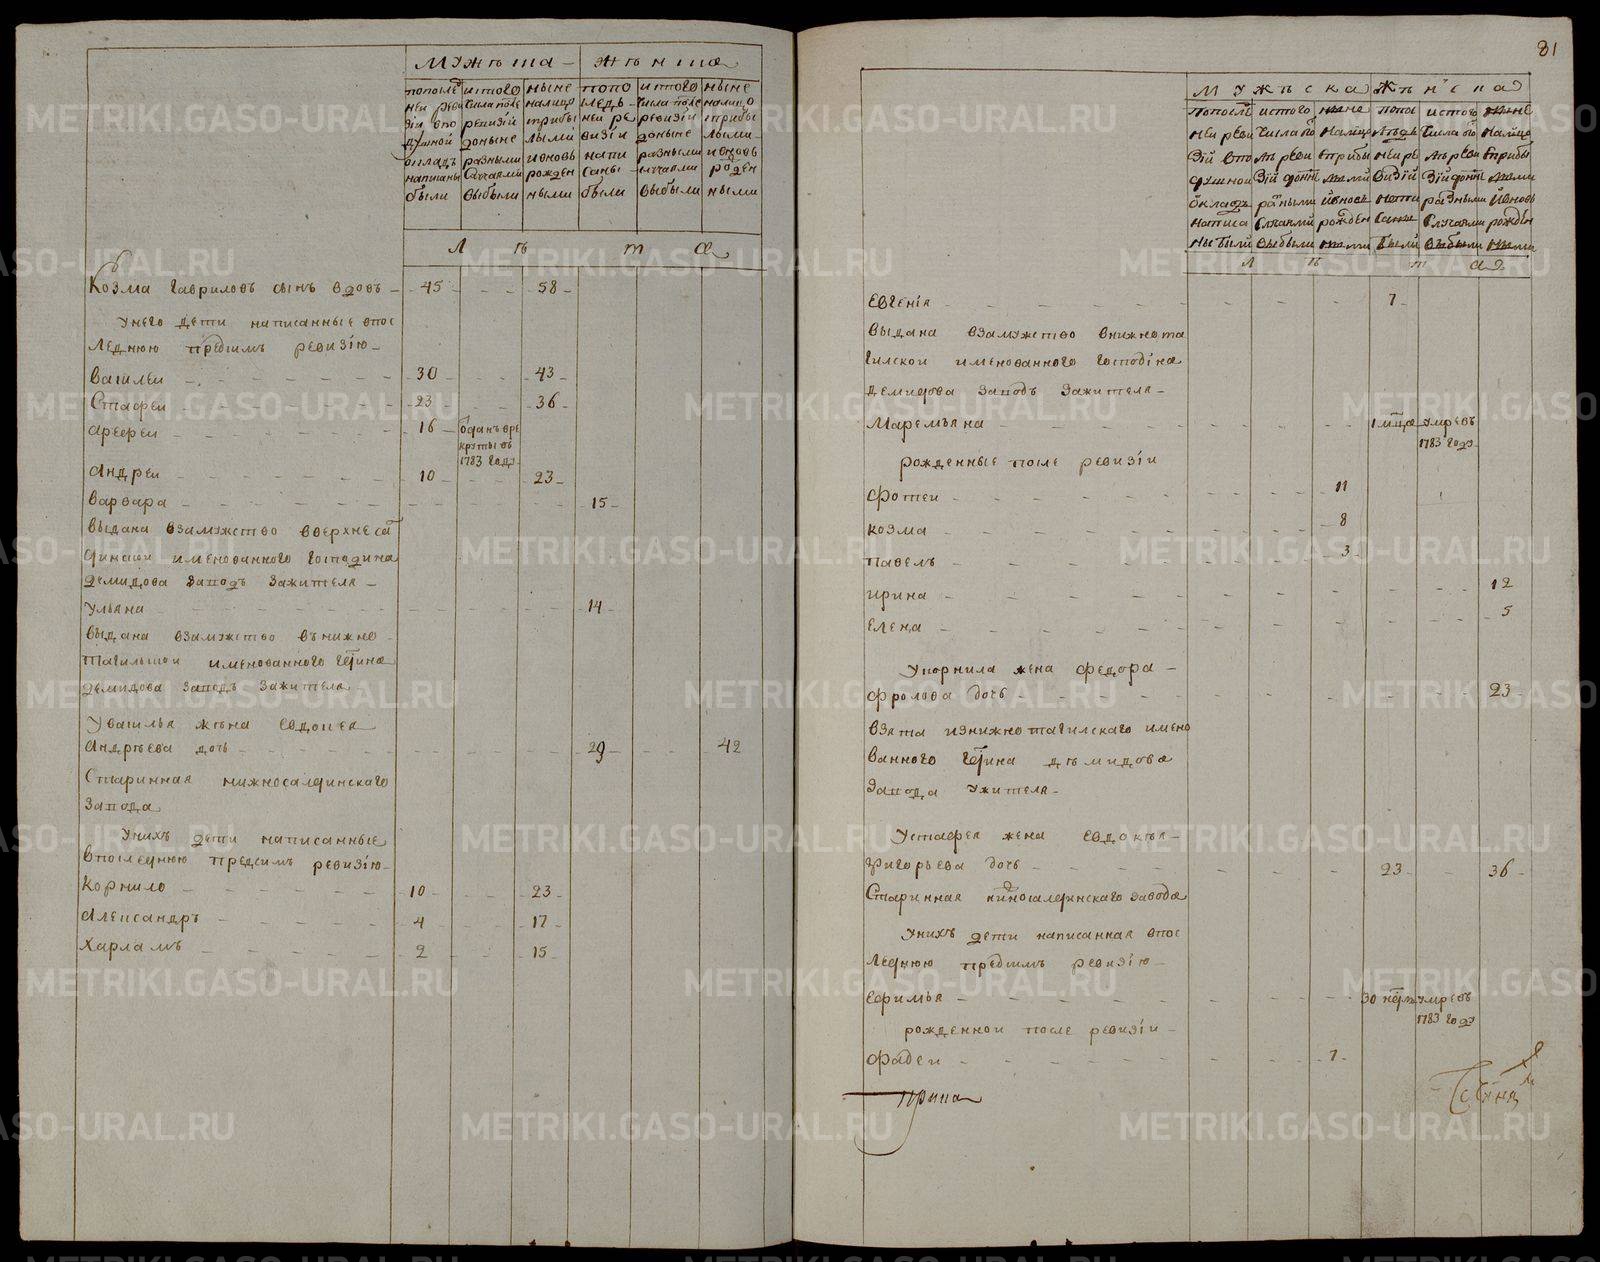 Мужъска
Женъска
пополѣ нѣи реви зiи впо душной окладъ написаны были
истого числа после ревизiи доныне разными случаями выбыли
ныне налицо сприбы лыми ивновь рожден ными
попо следь ней ре визiи напи саны были
истого числа после ревизiи доныне разными случаями выбыли
ныне налицо сприбы лыми ивновь рожден ными
лѣта
Козма Гавриловъ сынъ вдовъ 45 58
Унего дети написанные впос
леднюю предсимъ ревизiю
Василеи 30 43
Стафеи 23 36
Арефеи 16 отданъ вре
круты въ
1783 году
Андреи 10 23
Варвара 15
выдана взамужство вверхнеса
лдинскои именованного господина
демидова заводъ зажителя
Ульяна 14
выдана взамужство внижно
тагильскои именованного гдина
демидова заводъ зажителя
Увасилья жена Евдокея
Андреева дочь 29 42
Старинная нижносалдинскаго
завода
Унихъ дети написанные
впоследнюю предсимъ ревизiю
Корнило 10 23
Александръ 4 17
Харламъ 2 15
81
Мужъска
Женъска
пополѣ ней реви зiй впо душной окладъ написа ны были
истого числа по слѣ реви зiй доны разными случаями выбыли
ныне налицо сприбы лыми ивновь рожден ными
попо следь ней ре визiй напи саны были
истого числа по слѣ реви зiй доны разными случаями выбыли
ныне налицо сприбы лыми ивновь рожден ными
лѣта
Евгенiя 7
выдана взамужство внижнота
гилскои именованного господина
демидова заводъ зажителя
Маремьяна 1 мца умре въ
1783 году
рожденные после ревизiи
Фотеи 11
Козма 8
Павелъ 3
Ирина 12
Елена 5
Укорнила жена Федора
Фролова дочь 23
взята изнижнотагилскаго имено
ванного гдина демидова
завода ужителя
Устафея жена Евдокея
Григорьева дочь 23 36
Старинная нижносалдинскаго завода
Унихъ дети написанная впос
леднюю предсимъ ревизiю
Ефимья 30 недель умре въ
1783 году
рожденнои после ревизiи
Фадеи 7
ирина